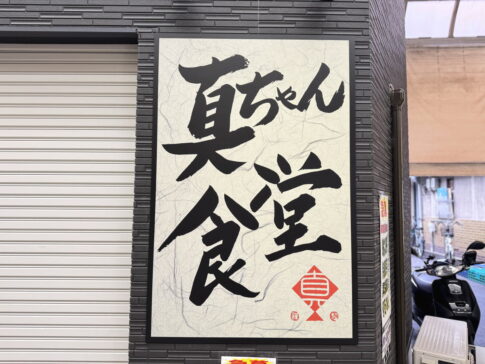 真ちゃん
食堂
真